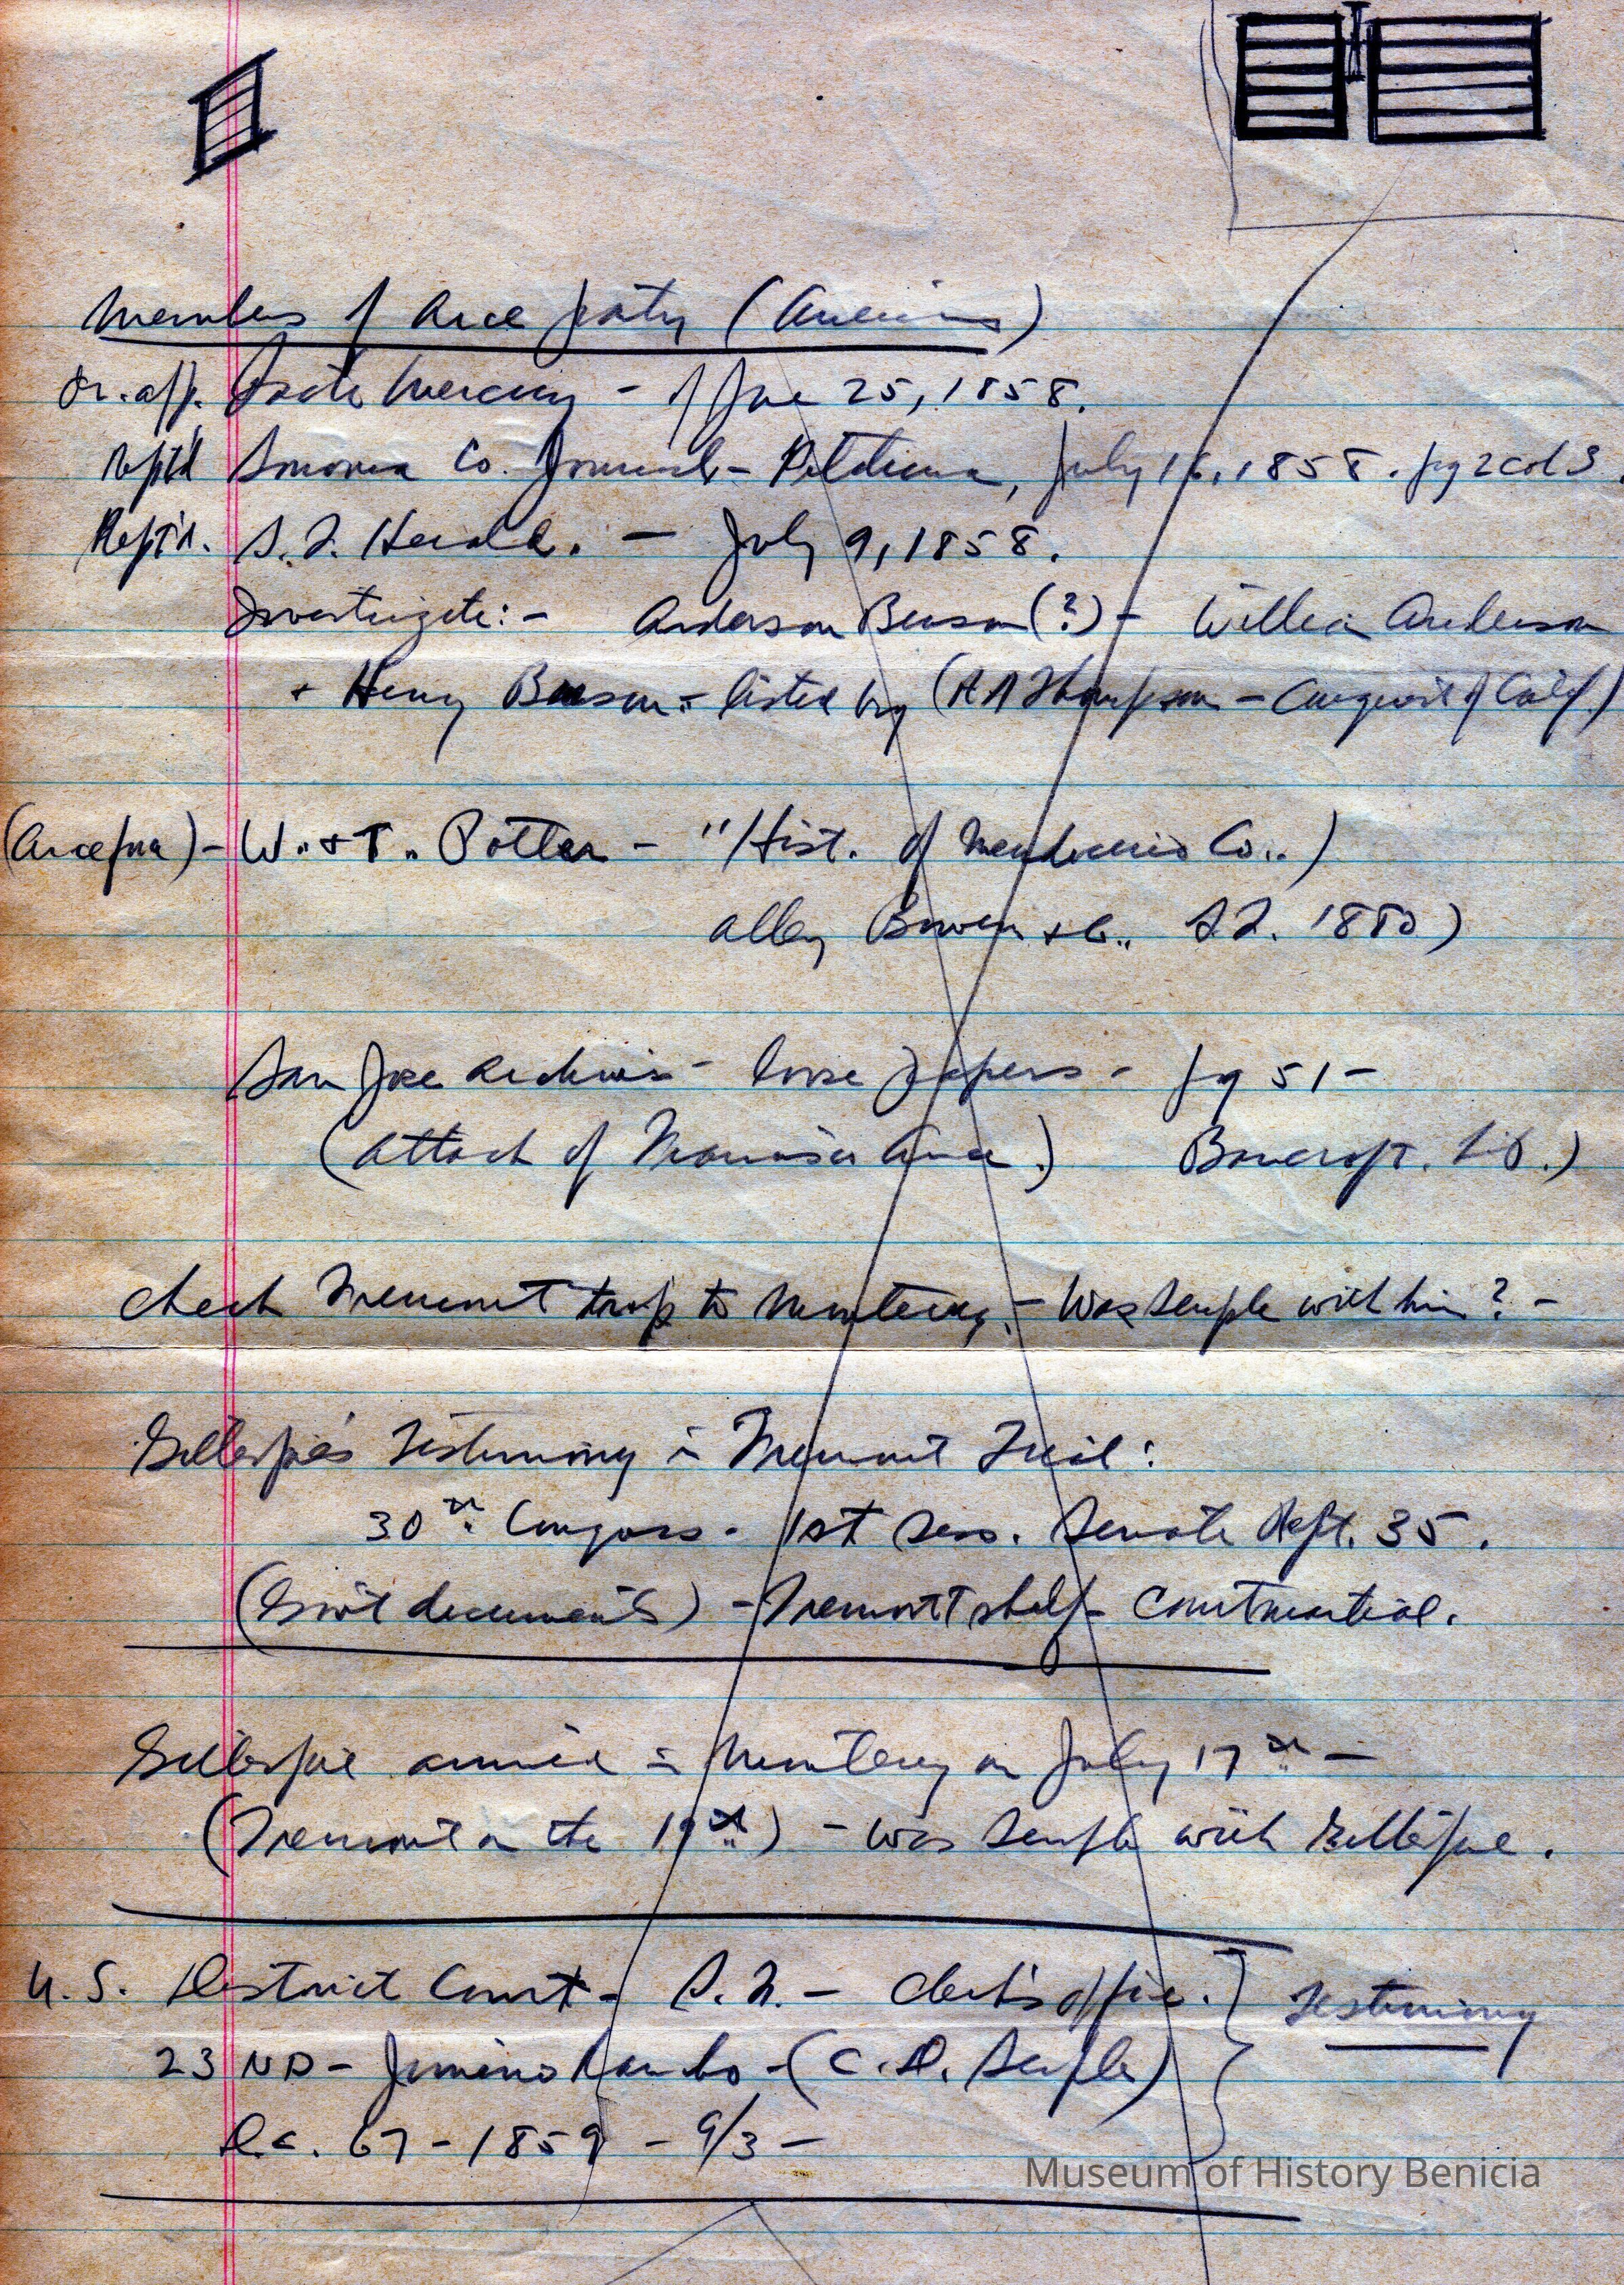 Members of Arce party (Americans)
Or. app. State Mercury - of June 25, 1858.
Rept'd Sonoma Co. Journal - Petaluma, July 16, 1858. pg 2 col 3.
Rept'd. S.F. Herald. - July 9, 1858.
Investigate: - Anderson Beeson (?) - William Anderson
+ Henry Beeson - listed by (R A Thompson - Conquest of Calif.)
(Arce ) - W.. + T.. Potter - "Hist. of Mendocino Co..)
Alley Bowen + Co.. S.F. 1880)
San Jose Archives - loose papers - pg 51 -
(Attack of Francisco Arce.) Bancroft. Lib.)
Check Fremont trip to Monterey. - Was Semple with him? -
Gillespie's Testimony in Fremont Trial:
30th. Congress - 1st Sess. Senate Rept. 35.
(Gov't documents) - Fremont shelf - Courtmartial.
Gillespie arrived in Monterey on July 17th -
(Fremont on the 19th) - Was Semple with Gillespie.
U.S. District Court - S.F. - Clerk's office. } Testimony
23 ND - Jimeno Rancho - (C.D. Semple)
D.C. 67 - 1859 - 9/3 -
Museum of History Benicia